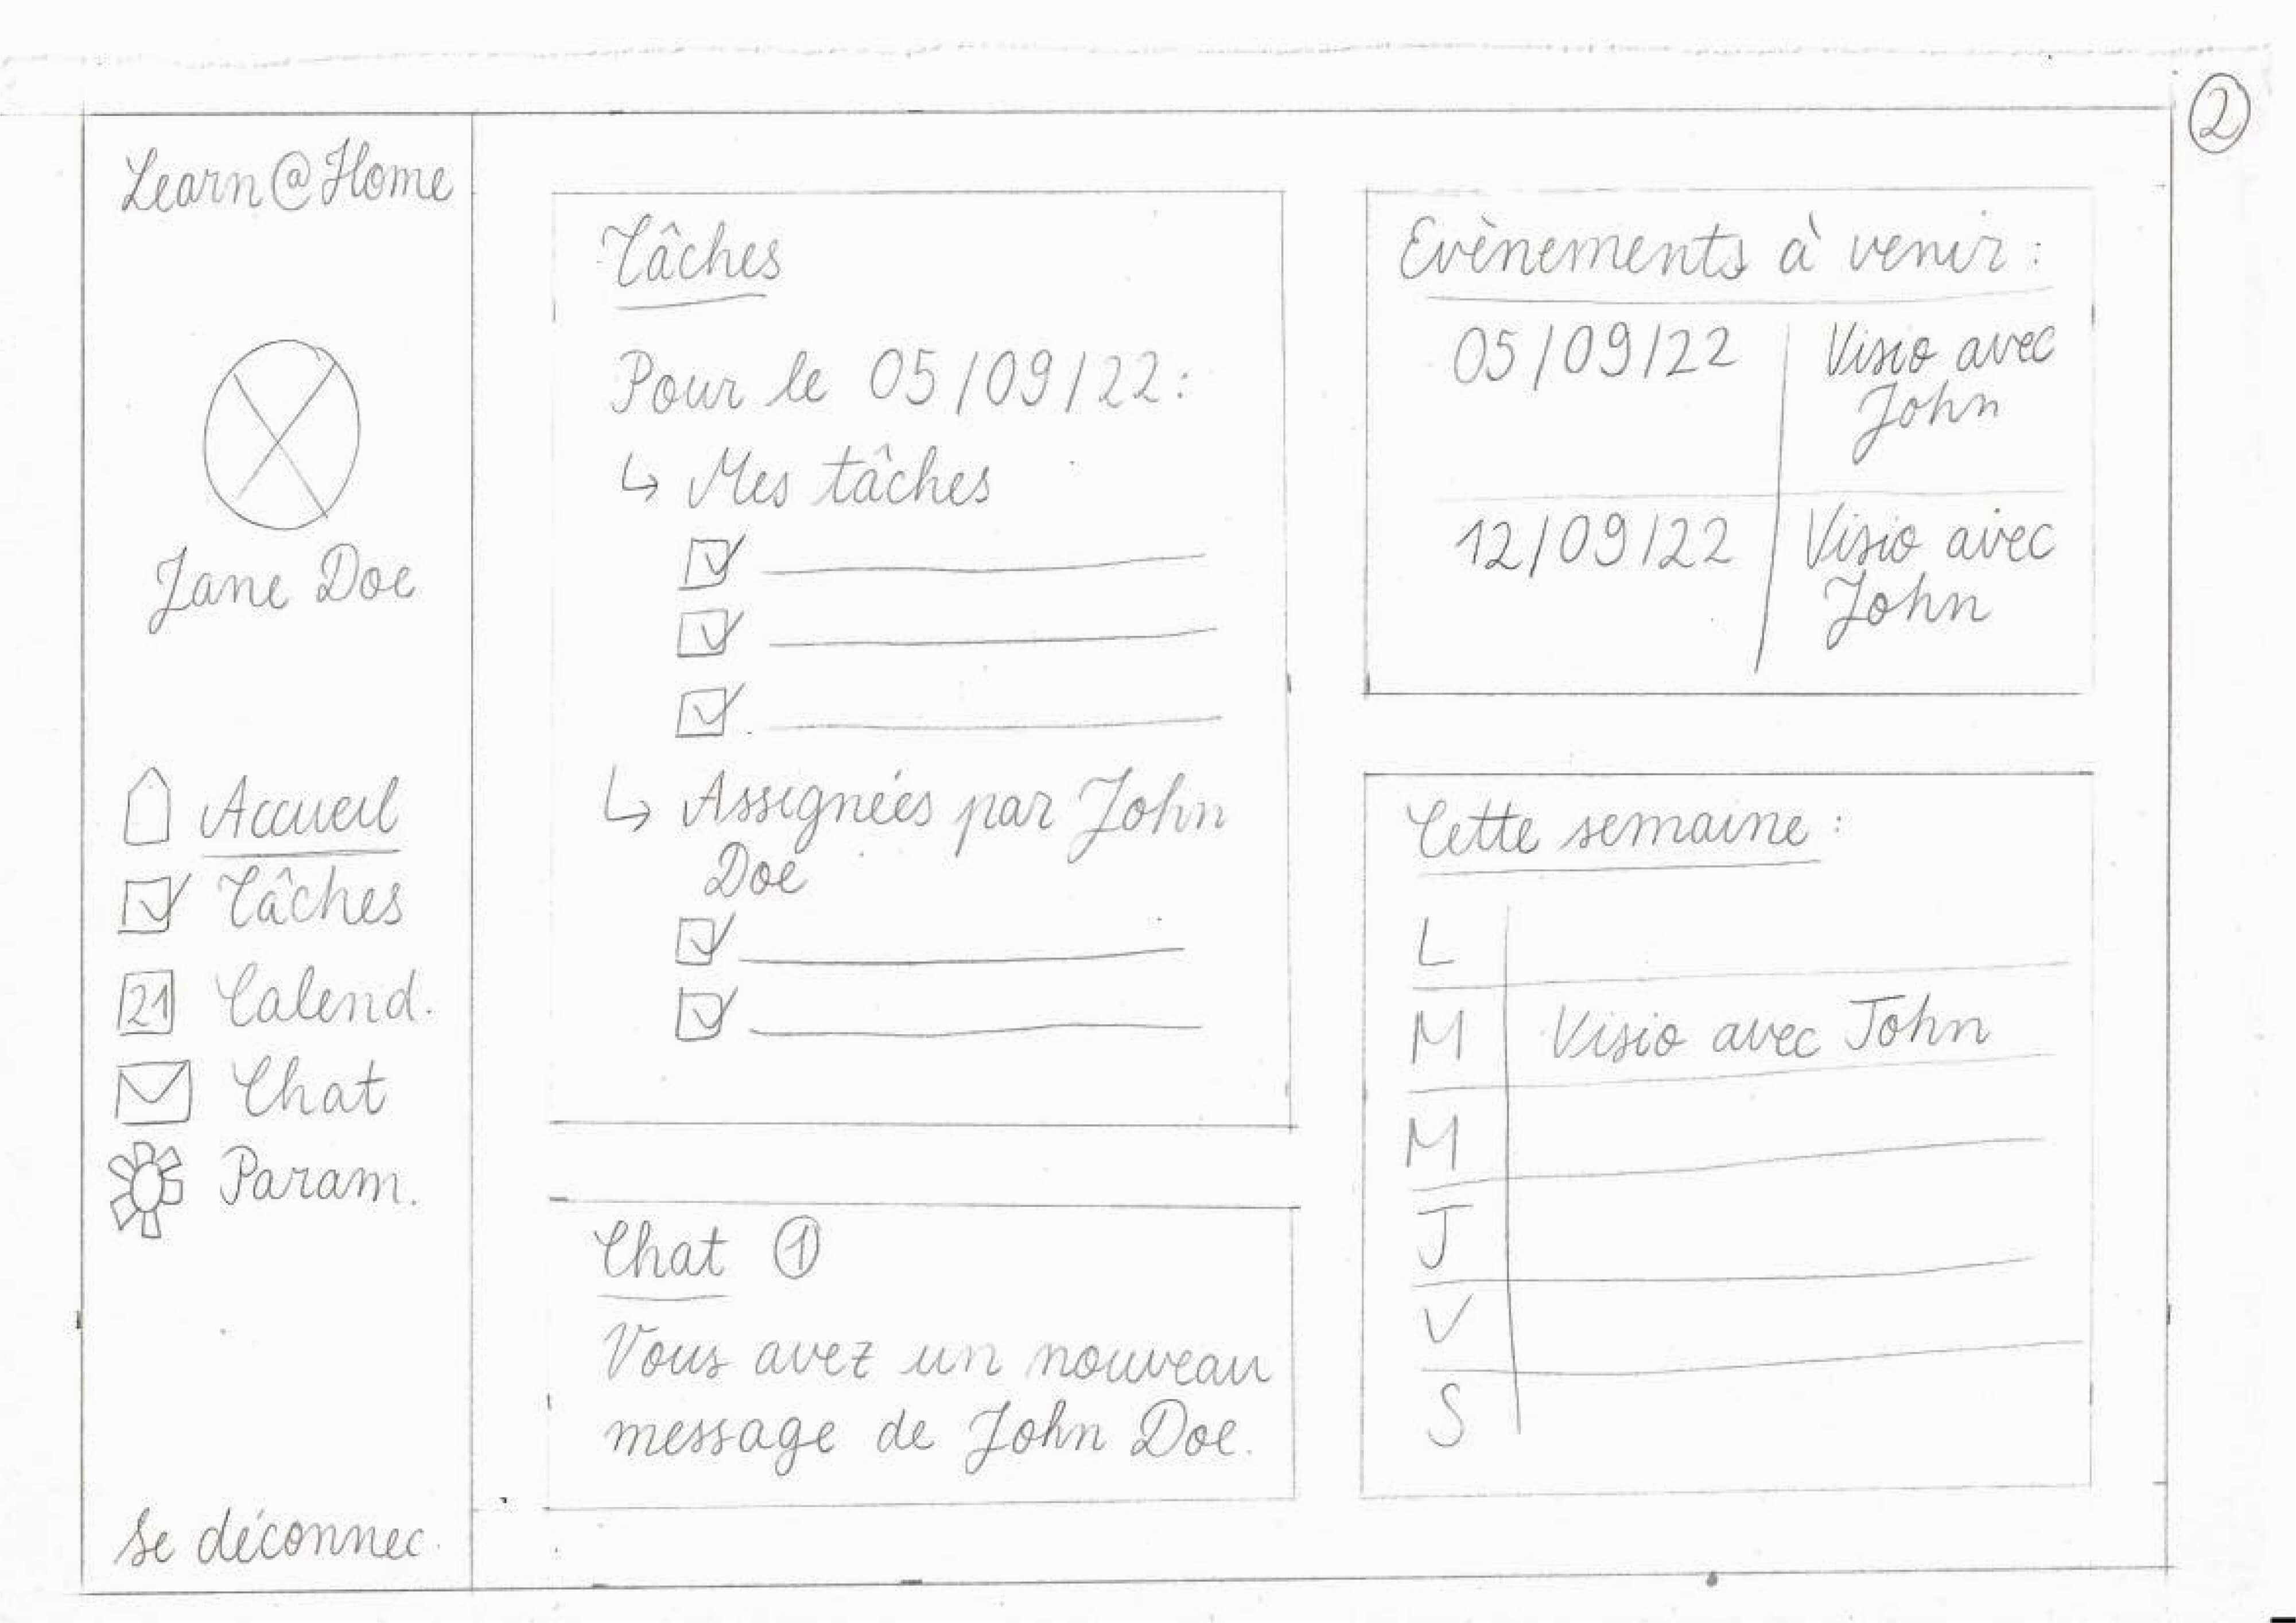 2
Learn@Home
Jane Doe
Accueil
Tâches
21 Calend.
Chat
Param.
Se déconnec.
Tâches
Pour le 05/09/22:
↳ Mes tâches
↳ Assignées par John
Doe
Chat 1
Vous avez un nouveau
message de John Doe.
Evènements à venir:
05/09/22 Visio avec
John
12/09/22 Visio avec
John
Cette semaine:
L
M Visio avec John
M
J
V
S